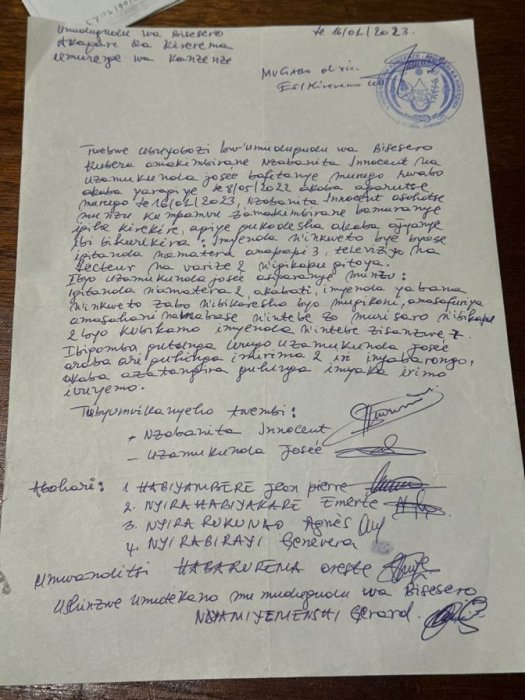 Umudugudu wa Bisesero
Akagari ka Kirerema
Umurenge wa Kanzenze
le 16/01/2023.
MUGABO
ES/Kirerema
Twebwe Ubuyobozi bw'umudugudu wa Bisesero
kubera amakimbirane Nzabanita Innocent na
Uzamukunda joseé bafitanye murugo rwabo
akaba yaragiye le 8/05/2022 akaba agarutse
murugo le 16/01/2023, Nzabanita Innocent asohotse
munzu ku mpamvu zamakimbirane bamaranye
igihe kirekire, agiye gukodesha akaba ajyanye
ibi bikurikira: imyenda n'inkweto bye byose
igitanda namatera amapapi 3, televiziyo na
decteur na varize 2 n'igikapu gitoya.
Ibyo Uzamukunda joseé asigaranye munzu:
igitanda namatera 2, akabati, imyenda yabana
n'inkweto zabo n'ibikoresho byo mugikoni, amasafuriya
amasahani namabase n'intebe zo muri saro n'ibikapu
2 byo kubikamo imyenda n'intebe zisanzwe 2
Ibigomba gutunga urugo Uzamukunda joseé
araba ari guhinga imirima 2 iri inyabarongo,
akaba azatangira guhinga imyaka irimo
ivuyemo.
Tubyumvikanyeho twembi:
+ Nzabanita Innocent
- Uzamukunda Joseé
Abahari: 1 HABIYAMBERE jean pierre
2. NYIRAHABIYAKARE Emerte
3. NYIRA RUKUNDO Agnès
4. NYIRABIRAYI Genevera
Umwanditsi HABARUREMA oreste
Ushinzwe Umutekano mu mudugudu wa Bisesero
NSHAMIYEMENSHI Gerard.